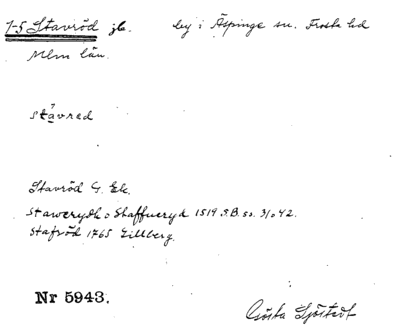 1-5 Stavröd jb. by i Äspinge sn. Frosta hd
Mlm län.
stavred
Stavröd G. Ek.
Stawerydh o Staffueryd 1519 S.B. so. 3/0 42.
Stafröd 1765 Gillberg.
Nr 5943.
Gösta Sjöstedt